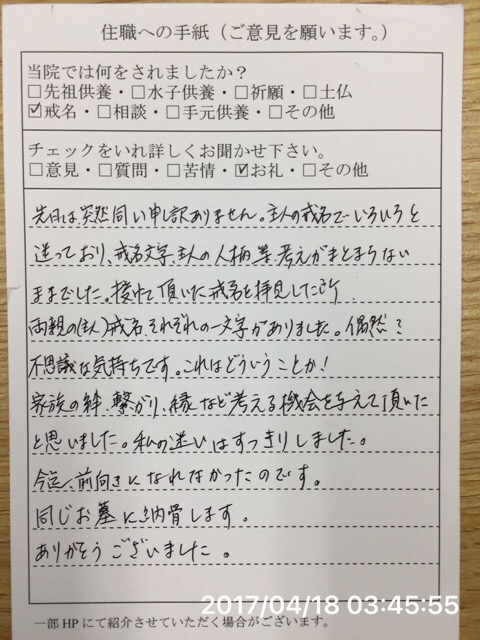 住職への手紙（ご意見を願います。）
当院では何をされましたか？
□先祖供養・□水子供養・□祈願・□土仏
☑戒名・□相談・□手元供養・□その他
チェックをいれ詳しくお聞かせ下さい。
□意見・□質問・□苦情・☑お礼・□その他
先日は突然伺い申訳ありません。主人の戒名でいろいろと
迷っており、戒名文字、主人の人柄等、考えがまとまらない
ままでした。授けて頂いた戒名を拝見した所
両親の(主人)戒名、それぞれの一文字がありました。偶然？
不思議な気持ちです。これはどういうことか！
家族の絆、繋がり、縁など考える機会を与えて頂いた
と思いました。私の迷いはすっきりしました。
今迄、前向きになれなかったのです。
同じお墓に納骨します。
ありがとうございました。
2017/04/18 03:45:55
一部HPにて紹介させていただく場合がございます。